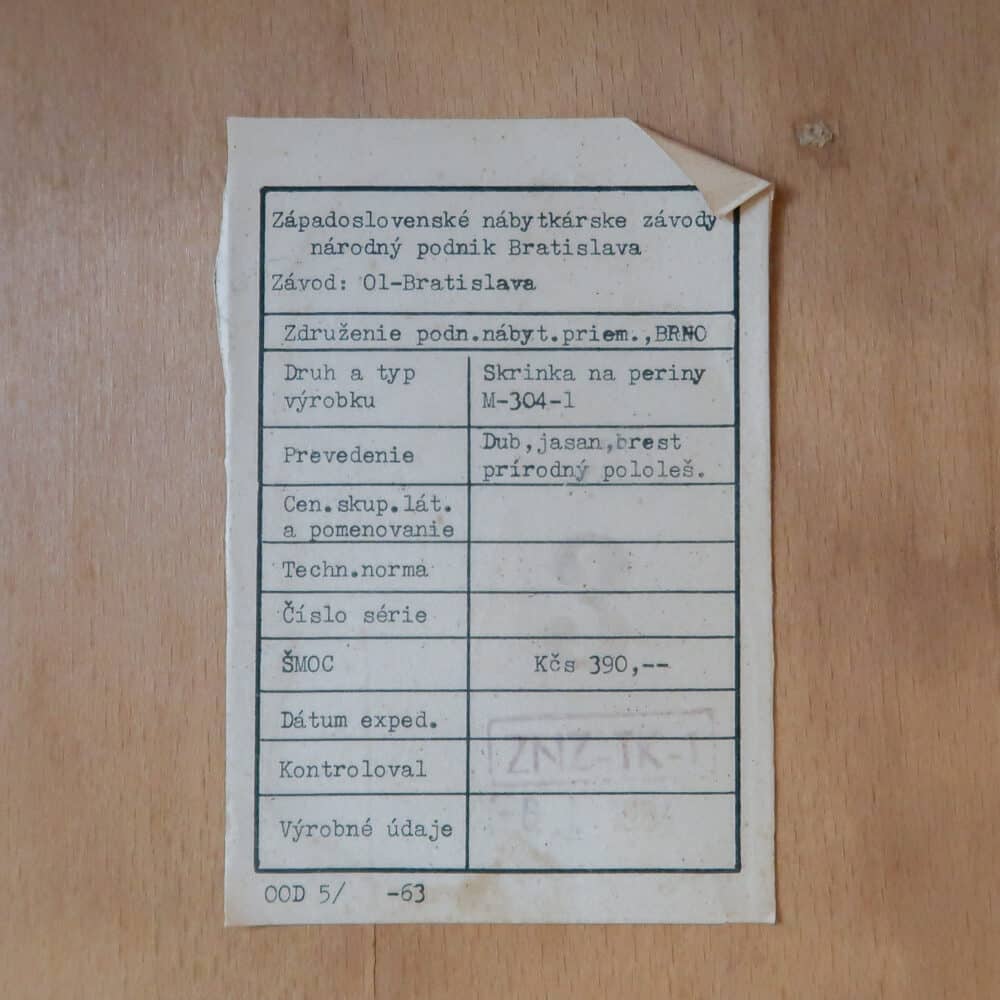 Západoslovenské nábytkárske závody
národný podnik Bratislava
Závod: 01-Bratislava
Združenie podn.nábyt.priem.,BRNO
Druh a typ výrobku
Skrinka na periny
M-304-1
Prevedenie
Dub,jasan,brest
prírodný pololeš.
Cen.skup.lát.
a pomenovanie
Techn.norma
Číslo série
ŠMOC
Kčs 390,--
Dátum exped.
Kontroloval
ZNZ-TK-1
Výrobné údaje
OOD 5/ -63